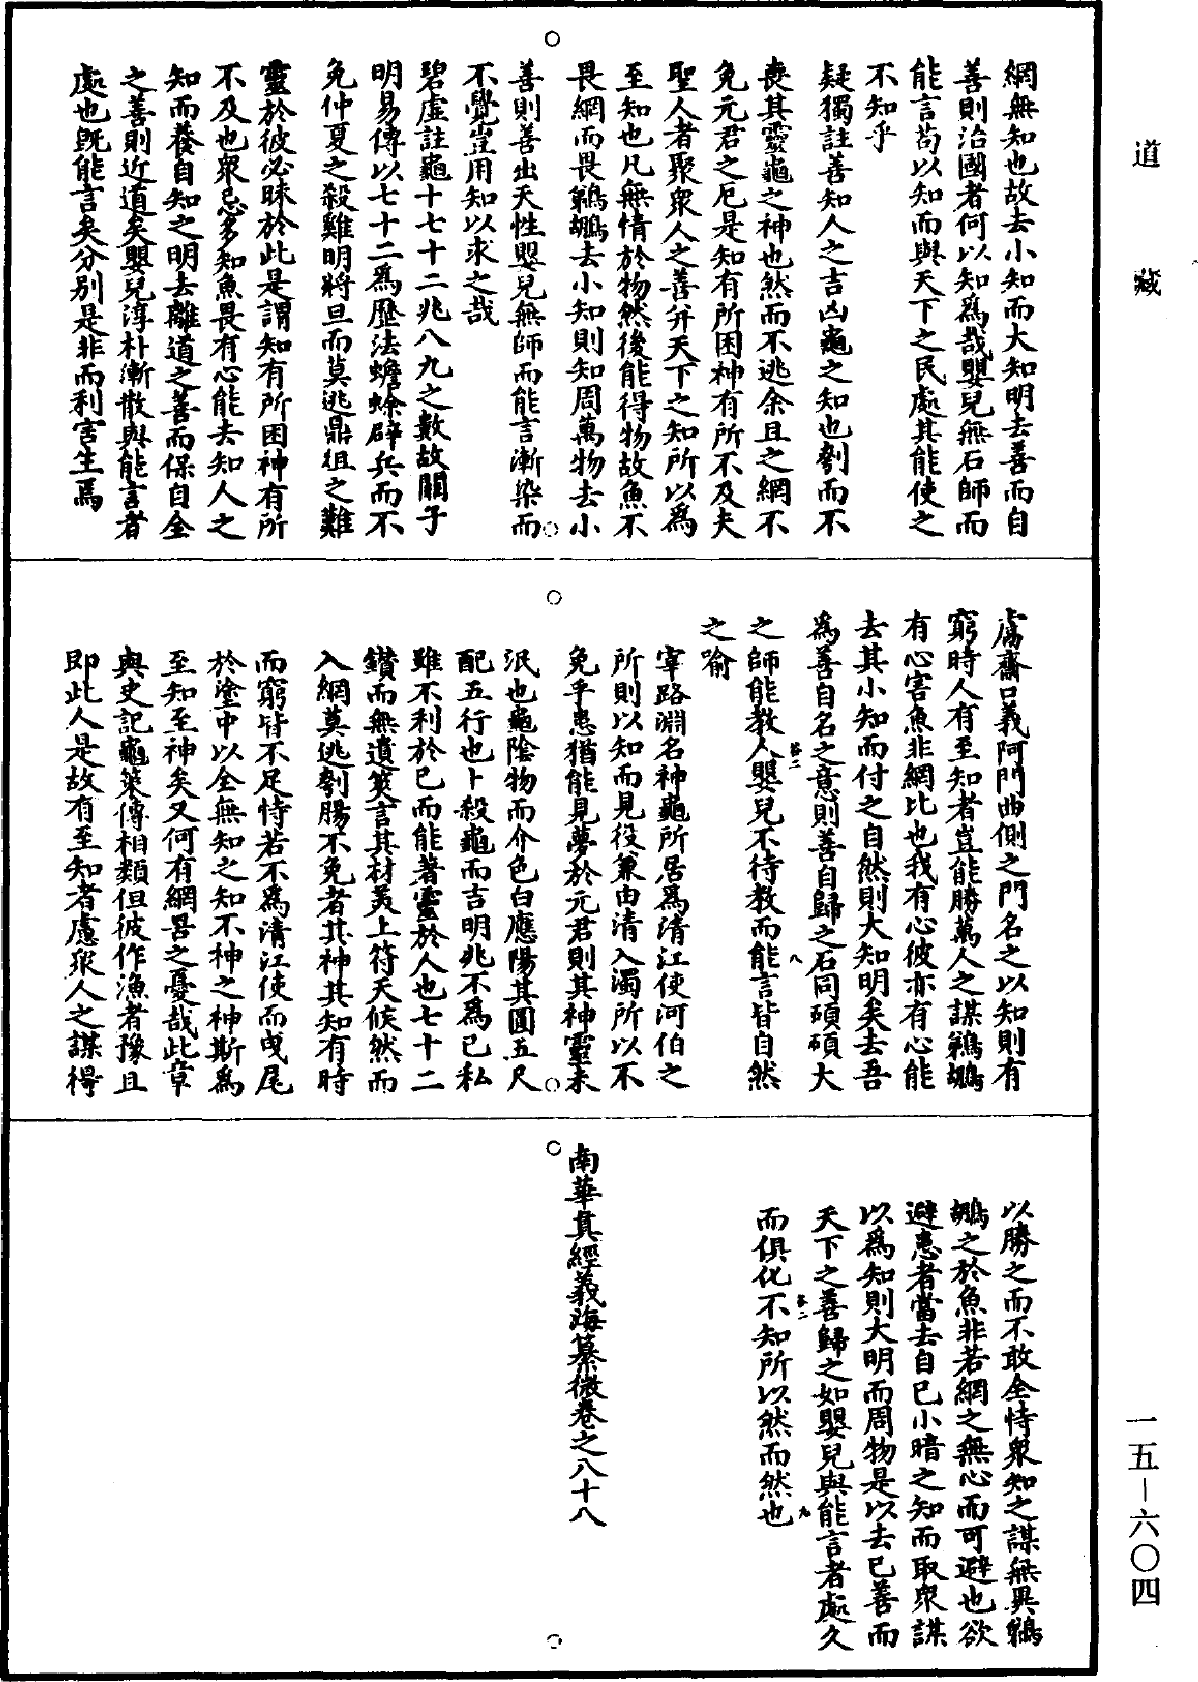 道藏
網無知也故去小知而大知明去善而自
善則治國者何以知為哉嬰兒無石師而
能言苟以知而與天下之民處其能使之
不知乎
疑獨註善知人之吉凶龜之知也刳而不
喪其靈龜之神也然而不逃余且之網不
免元君之厄是知有所困神有所不及夫
聖人者聚眾人之善弁天下之知所以為
至知也凡無情於物然後能得物故魚不
畏網而畏鵜鶘去小知則知周萬物去小
善則善出天性嬰兒無師而能言漸染而
不覺豈用知以求之哉
碧虛註龜十七十二兆八九之數故關子
明易傳以七十二為歷法蟾蜍辟兵而不
免仲夏之殺雞明將旦而莫逃鼎俎之難
靈於彼必昧於此是謂知有所困神有所
不及也眾忌多知魚畏有心能去知人之
知而養自知之明去離道之善而保自全
之善則近道矣嬰兒淳朴漸散與能言者
處也既能言矣分別是非而利害生焉
鬳齋口義阿門曲側之門名之以知則有
窮時人有至知者豈能勝萬人之謀鵜鶘
有心害魚非網比也我有心彼亦有心能
去其小知而付之自然則大知明矣去吾
為善自名之意則善自歸之石同碩碩大
之師能教人嬰兒不待教而能言皆自然
之喻
宰路淵名神龜所居為清江使河伯之
所則以知而見役兼由清入濁所以不
免乎患猶能見夢於元君則其神靈未
泯也龜陰物而介色白應陽其圓五尺
配五行也卜殺龜而吉明兆不為已私
雖不利於已而能著靈於人也七十二
鑽而無遺筴言其材美上符天候然而
入網莫逃刳腸不免者其神其知有時
而窮皆不足恃若不為清江使而曳尾
於塗中以全無知之知不神之神斯為
至知至神矣又何有網罟之憂哉此章
與史記龜筴傳相類但彼作漁者豫且
即此人是故有至知者慮眾人之謀得
以勝之而不敢全恃眾知之謀無異鵜
鶘之於魚非若網之無心而可避也欲
避患者當去自已小暗之知而取眾謀
以為知則大明而周物是以去已善而
天下之善歸之如嬰兒與能言者處久
而俱化不知所以然而然也
南華真經義海纂微卷之八十八
一五－六〇四